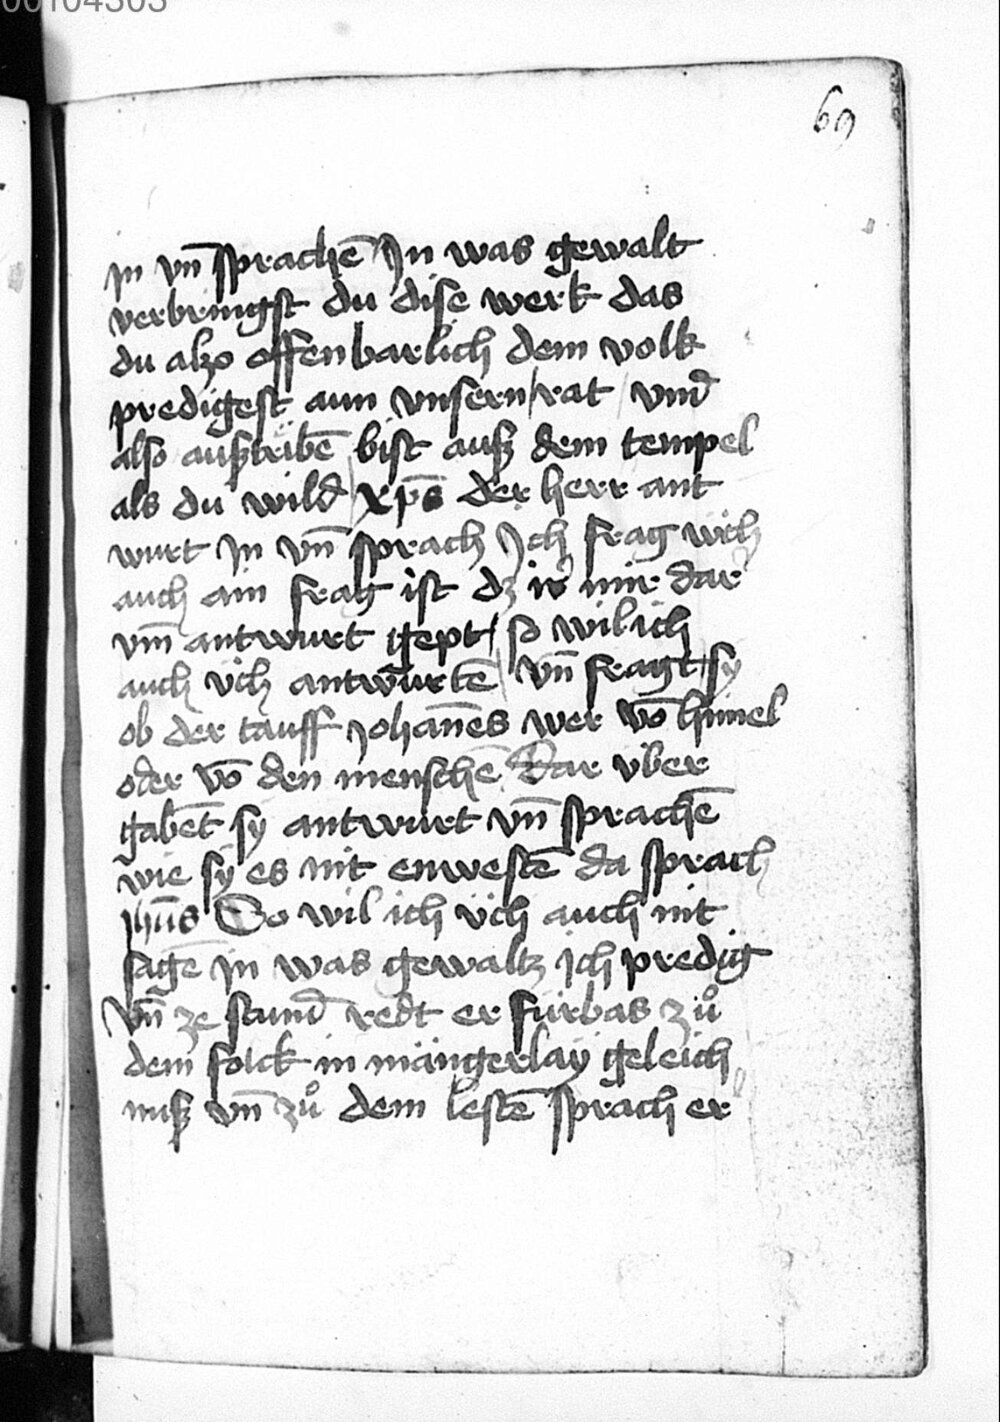 00104303
69
jn vn̄ sprachē Jn was gewalt
verbringst du dise werk das
du also offenbarlich dem volk
predigest aun vnsern / rat / vnd
also außtribē bist auß dem tempel
als du wild / xp̄s der herr ant
wurt jn vn̄ sprach Jch frag üch
auch ain frag ist dz ir mir dar
vm̄ antwurt gept / so wil ich
auch üch antwurtē / vn̄ fragt / sy
ob der tauff johan̄es wer vō him̄el
oder vō den menschē Dar v̈ber
gabēt sy antwurt vn̄ sprachē
wie sÿ es nit enwestē da sprach
jhūs So wil ich üch auch nit
sagē jn was gewaltz ich predig
Vn̄ ze stund redt er fürbas zů
dem folck in mängerlaÿ geleich
nuß vn̄ zů dem lestē sprach er